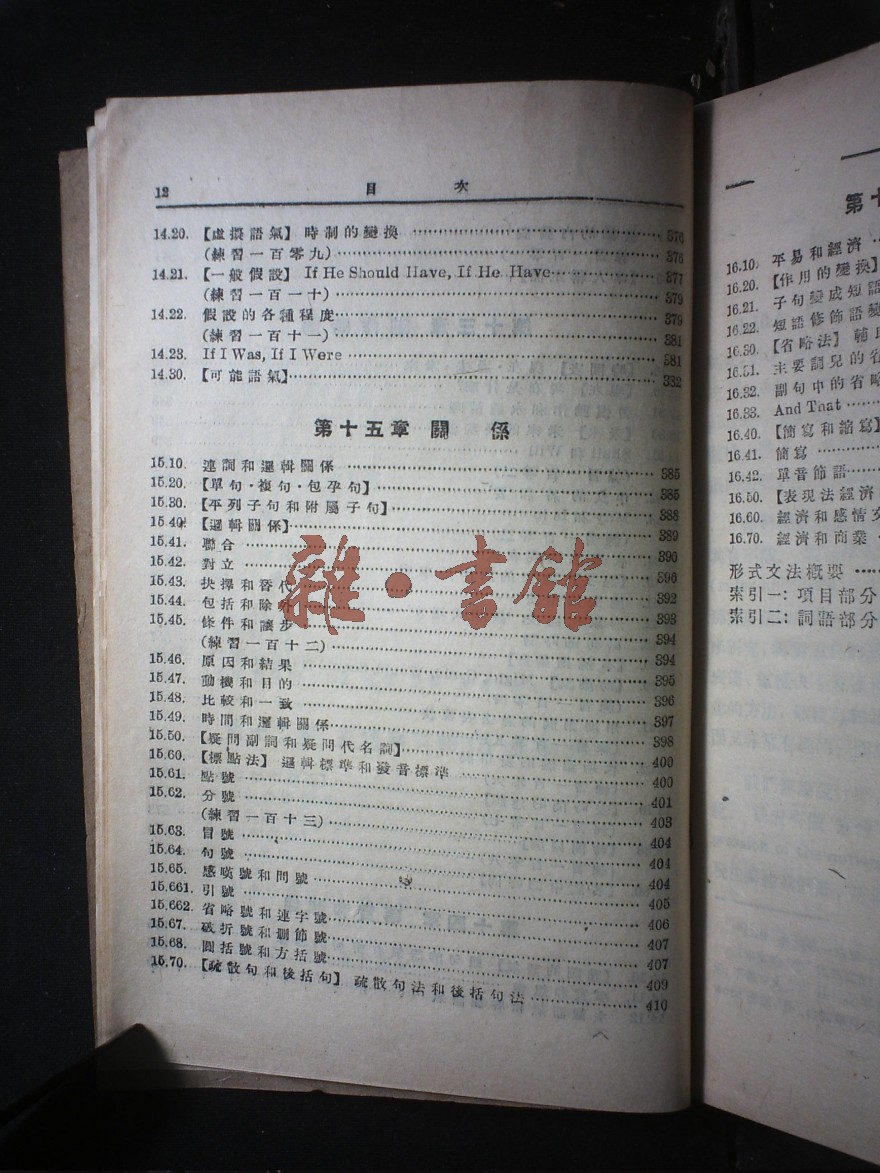 12 目 次
14.20. 【虛擬語氣】 時制的變換 376
(練習一百零九) 376
14.21. 【一般假設】 If He Should Have, If He Have 377
(練習一百一十) 379
14.22. 假設的各種程度 379
(練習一百十一) 381
14.23. If I Was, If I Were 381
14.30. 【可能語氣】 332
第十五章 關 係
15.10. 連詞和邏輯關係 385
15.20. 【單句·複句·包孕句】 385
15.30. 【平列子句和附屬子句】 388
15.40. 【邏輯關係】 389
15.41. 聯合 390
15.42. 對立 390
15.43. 抉擇和替代 392
15.44. 包括和除外 393
15.45. 條件和讓步 394
(練習一百十二) 394
15.46. 原因和結果 395
15.47. 動機和目的 396
15.48. 比較和一致 397
15.49. 時間和邏輯關係 398
15.50. 【疑問副詞和疑問代名詞】 400
15.60. 【標點法】 邏輯標準和發音標準 400
15.61. 點號 401
15.62. 分號 403
(練習一百十三) 404
15.63. 冒號 404
15.64. 句號 404
15.65. 感嘆號和問號 405
15.661. 引號 406
15.662. 省略號和連字號 407
15.67. 破折號和綳節號 407
15.68. 圓括號和方括號 409
15.70. 【疏散句和後括句】 疏散句法和後括句法 410
雜·書館
第十
16.10. 平易和經濟
16.20. 【作用的變換】
16.21. 子句變成短語
16.22. 短語修飾語變
16.30. 【省略法】 輔
16.31. 主要詞兒的省
16.32. 副句中的省略
16.33. And That
16.40. 【簡寫和縮寫】
16.41. 簡寫
16.42. 單音節語
16.50. 【表現法經濟
16.60. 經濟和感情
16.70. 經濟和商業
形式文法概要
索引一: 項目部分
索引二: 詞語部分